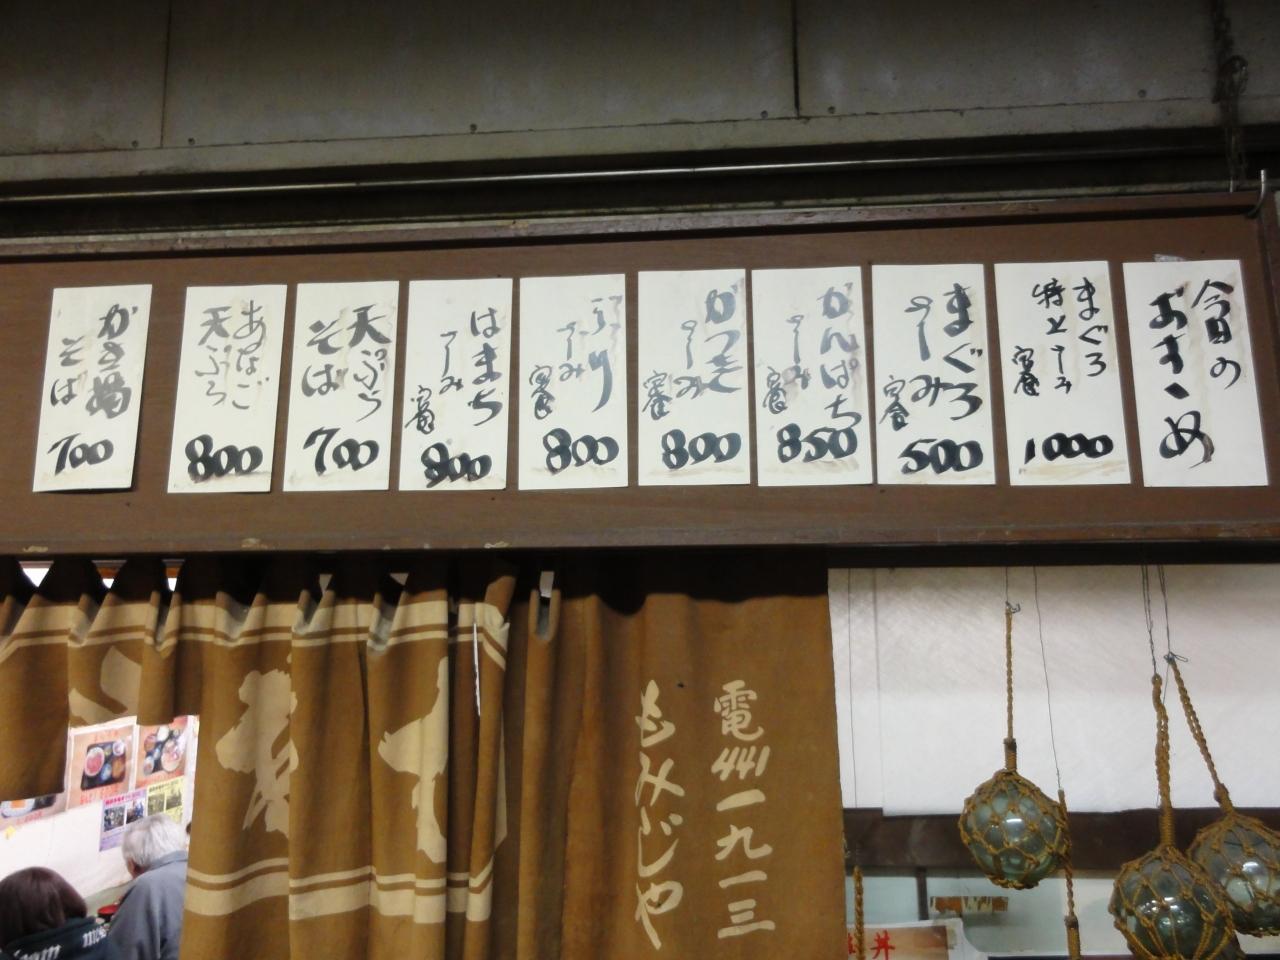 今日の
おすゝめ
まぐろ
特上さしみ
定食
1000
まぐろ
さしみ
定食
500
かんぱち
さしみ
定食
850
かつを
さしみ
定食
800
ぶり
さしみ
定食
800
はまち
さしみ
定食
800
天ぷら
そば
700
あなご
天ぷら
800
かき揚
そば
700
電441一九一三
もみじや
丼